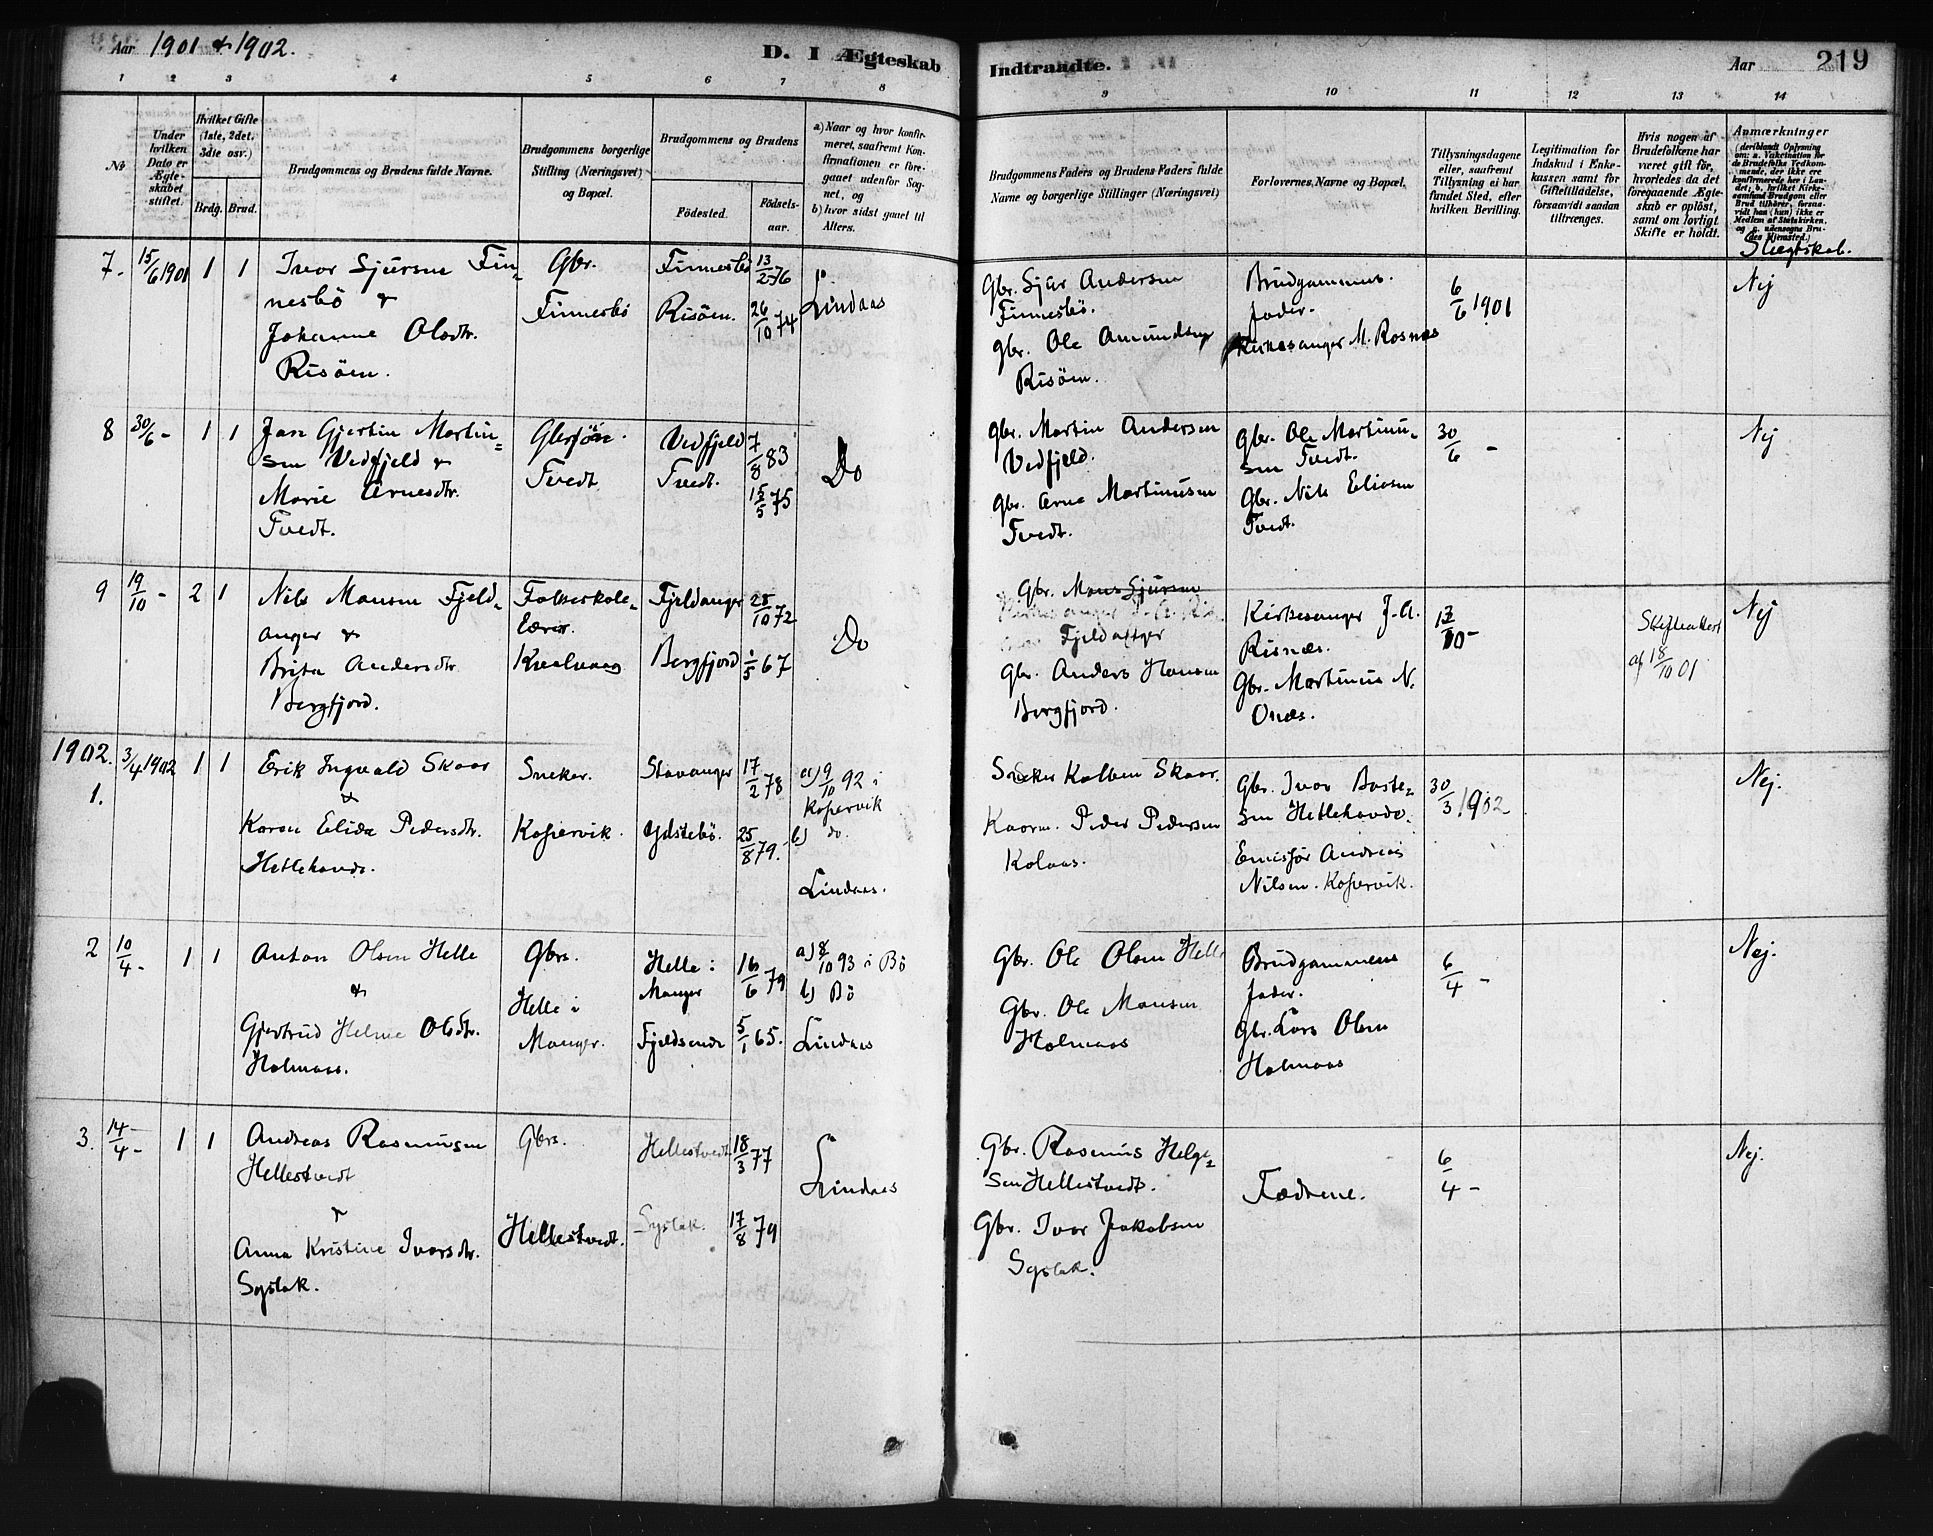 Aar 1901 & 1902.
D. I Ægteskab Indtraadte.
Aar 219
1 2 3 4 5 6 7 8 9 10 11 12 13 14
No
Under hvilken Dato er Ægteskabet stiftet.
Hvilket Gifte (1ste, 2det, 3die osv.)
Brdg. Brud.
Brudgommens og Brudens fulde Navne.
Brudgommens borgerlige Stilling (Næringsvei) og Bopæl.
Brudgommens og Brudens
Fødested. Fødselsaar.
a) Naar og hvor konfirmeret, saafremt Konfirmationen er foregaaet udenfor Sognet, og
b) hvor sidst gaaet til Alters.
Brudgommens Faders og Brudens Faders fulde Navne og borgerlige Stillinger (Næringsvei)
Forlovernes Navne og Bopæl.
Tillysningsdagene eller, saafremt Tillysning ei har fundet Sted, efter hvilken Bevilling.
Legitimation for Indskud i Enkekassen samt for Giftetilladelse, forsaavidt saadan tiltrænges.
Hvis nogen af Brudefolkene har været gift før, hvorledes da det foregaaende Ægteskab er opløst, samt om lovligt Skifte er holdt.
Anmærkninger
(deriblandt Oplysning om: a. Vakcination for de Brudefolks Vedkommende, der ikke ere konfirmerede her i Landet; b. hvilket Kirkesamfund Brudgom eller Brud tilhører, forsaavidt han (hun) ikke er Medlem af Statskirken, og c. udensogns Brudes Hjemsted.)
Slægtskab.
7. 15/6 1901 1 1
Ivar Sjursen Fin-
nesbö &
Johanne Olsdtr.
Risöen.
Gbr.
Finnesbö
Finnesbö 13/2 76
Risöen. 26/10 74
Lindaas
Gbr. Sjur Andersen
Finnesbö.
Gbr. Ole Amundsen
Risöen.
Brudgommens
fader.
Kirkesanger M. Rosnæs
6/6 1901
Nej
8 30/6 - 1 1
Jan Gjertin Martin-
sen Vedfjeld &
Marie Arnesdtr.
Tvedt.
Tvedt
Vedfjeld 7/8 83
Tvedt. 15/5 75
Do
Gbr. Martin Andersen
Vedfjeld.
Gbr. Arne Martinusen
Tvedt.
Gbr. Ole Martinu-
sen Tvedt.
Gbr. Nils Eliasen
Tvedt.
30/6 -
Nej
9 19/10 - 2 1
Nils Monsen Fjeld-
anger &
Brita Andersdtr.
Bergfjord.
Folkeskole-
lærer.
Kvalvaag
Fjeldanger 28/10 72
Bergfjord 1/5 67
Do
Gbr. Mons Sjursen
Fjeldanger
Gbr. Anders Hansen
Bergfjord.
Kirkesanger J. A.
Risnæs.
Gbr. Martinus N.
Onæs.
13/10 -
Skifteattest
af 18/10 01
Nej
1902. 3/4 1902 1 1
1.
Erik Ingvald Skaar
&
Karen Elida Pedersdtr.
Hetlehovde.
Sneker.
Kopervik.
Stavanger 17/2 78
Ydstebö. 25/8 79.
a) 9/10 92 i
Kopervik
b) do
Lindaas.
Sneker Kolben Skaar.
Kaarm. Peder Pedersen
Kolaas.
Gbr. Ivar Baste-
sen Hetlehovde.
Emisjör Andreas
Nilsen. Kopervik.
30/3 1902
Nej.
2 10/4 - 1 1
Anton Olsen Helle
&
Gjertrud Helene Olsdtr.
Holmaas.
Gbrs.
Helle i
Manger.
Helle i
Manger 16/6 79
Fjeldsende 5/1 65.
a) 8/10 93 i Bö
b) Bö
Lindaas
Gbr. Ole Olsen Helle
Gbr. Ole Monsen
Holmaas
Brudgommens
fader.
Gbr. Lars Olsen
Holmaas
6/4 -
Nej.
3. 14/4 - 1 1
Andreas Rasmussen
Hellestvedt
&
Anna Kristine Ivarsdtr.
Syslak.
Gbrs.
Hellestvedt.
Hellestvedt 18/3 77
Syslak. 17/8 79
Lindaas
Gbr. Rasmus Helge-
sen Hellestvedt.
Gbr. Ivar Jakobsen
Syslak.
Fædrene.
6/4 -
Nej.